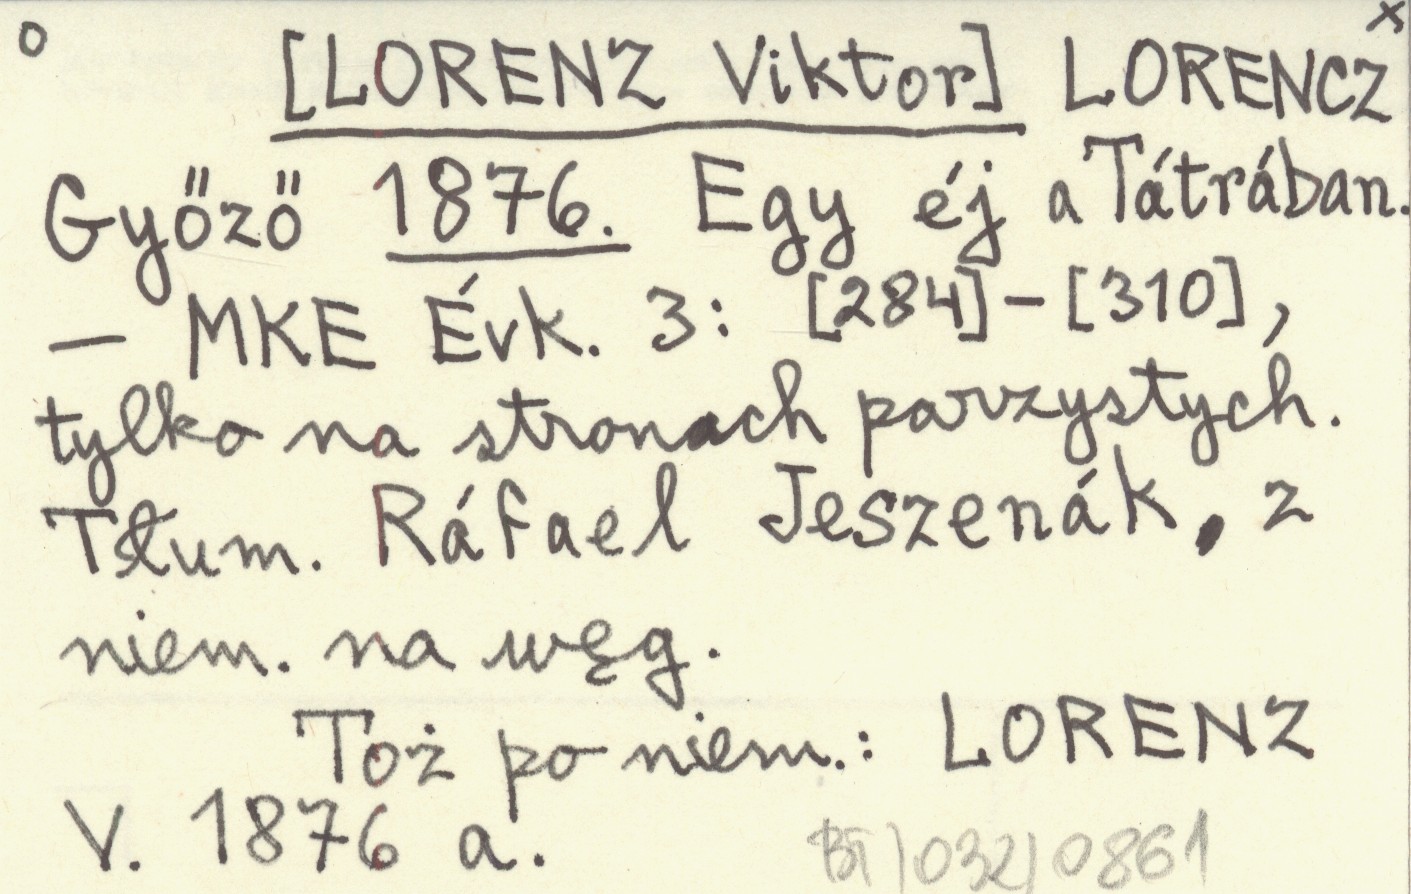 o [LORENZ Viktor] LORENCZ x
Győző 1876. Egy éj a Tátrában.
— MKE Évk. 3: [284]–[310],
tylko na stronach parzystych.
Tłum. Ráfael Jeszenák, z
niem. na węg.
Toż po niem.: LORENZ
V. 1876 a.
BT/032/0861